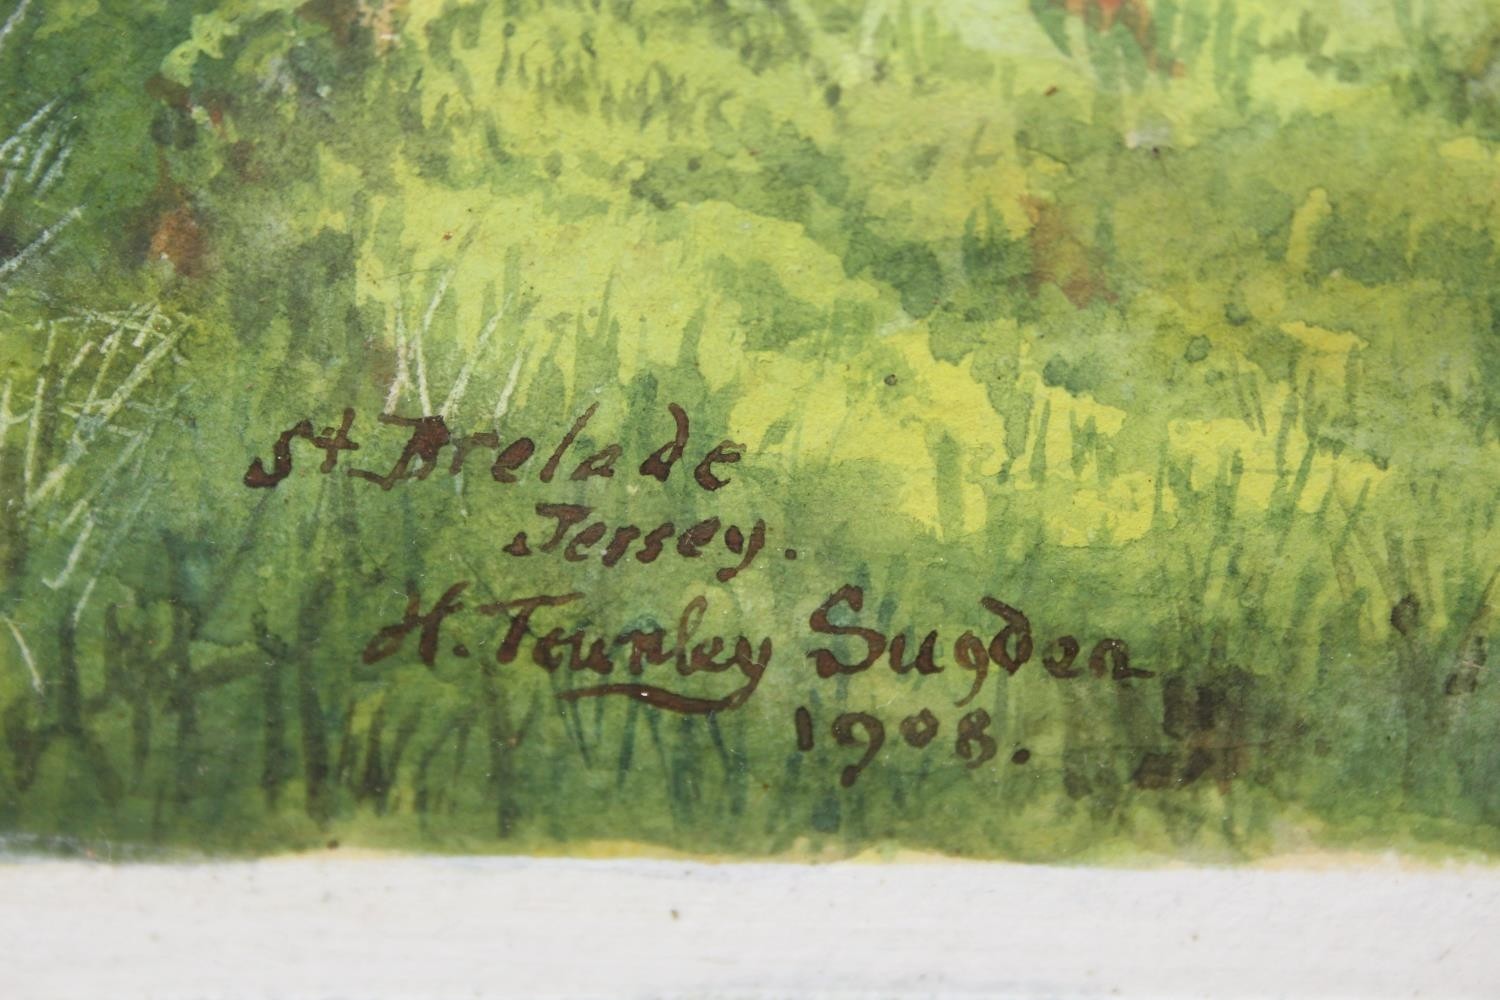 St Brelade
Jersey.
H. Townley Sugden
1908.